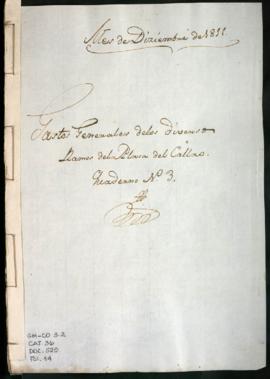 Mes de Diziembre de 1811
Gastos Generales de los diversos
Ramos de la Plasa del Callao.
Quaderno Nº 3.
GM-CO 3.2
CAJ. 36
DOC. 520
FOL. 44